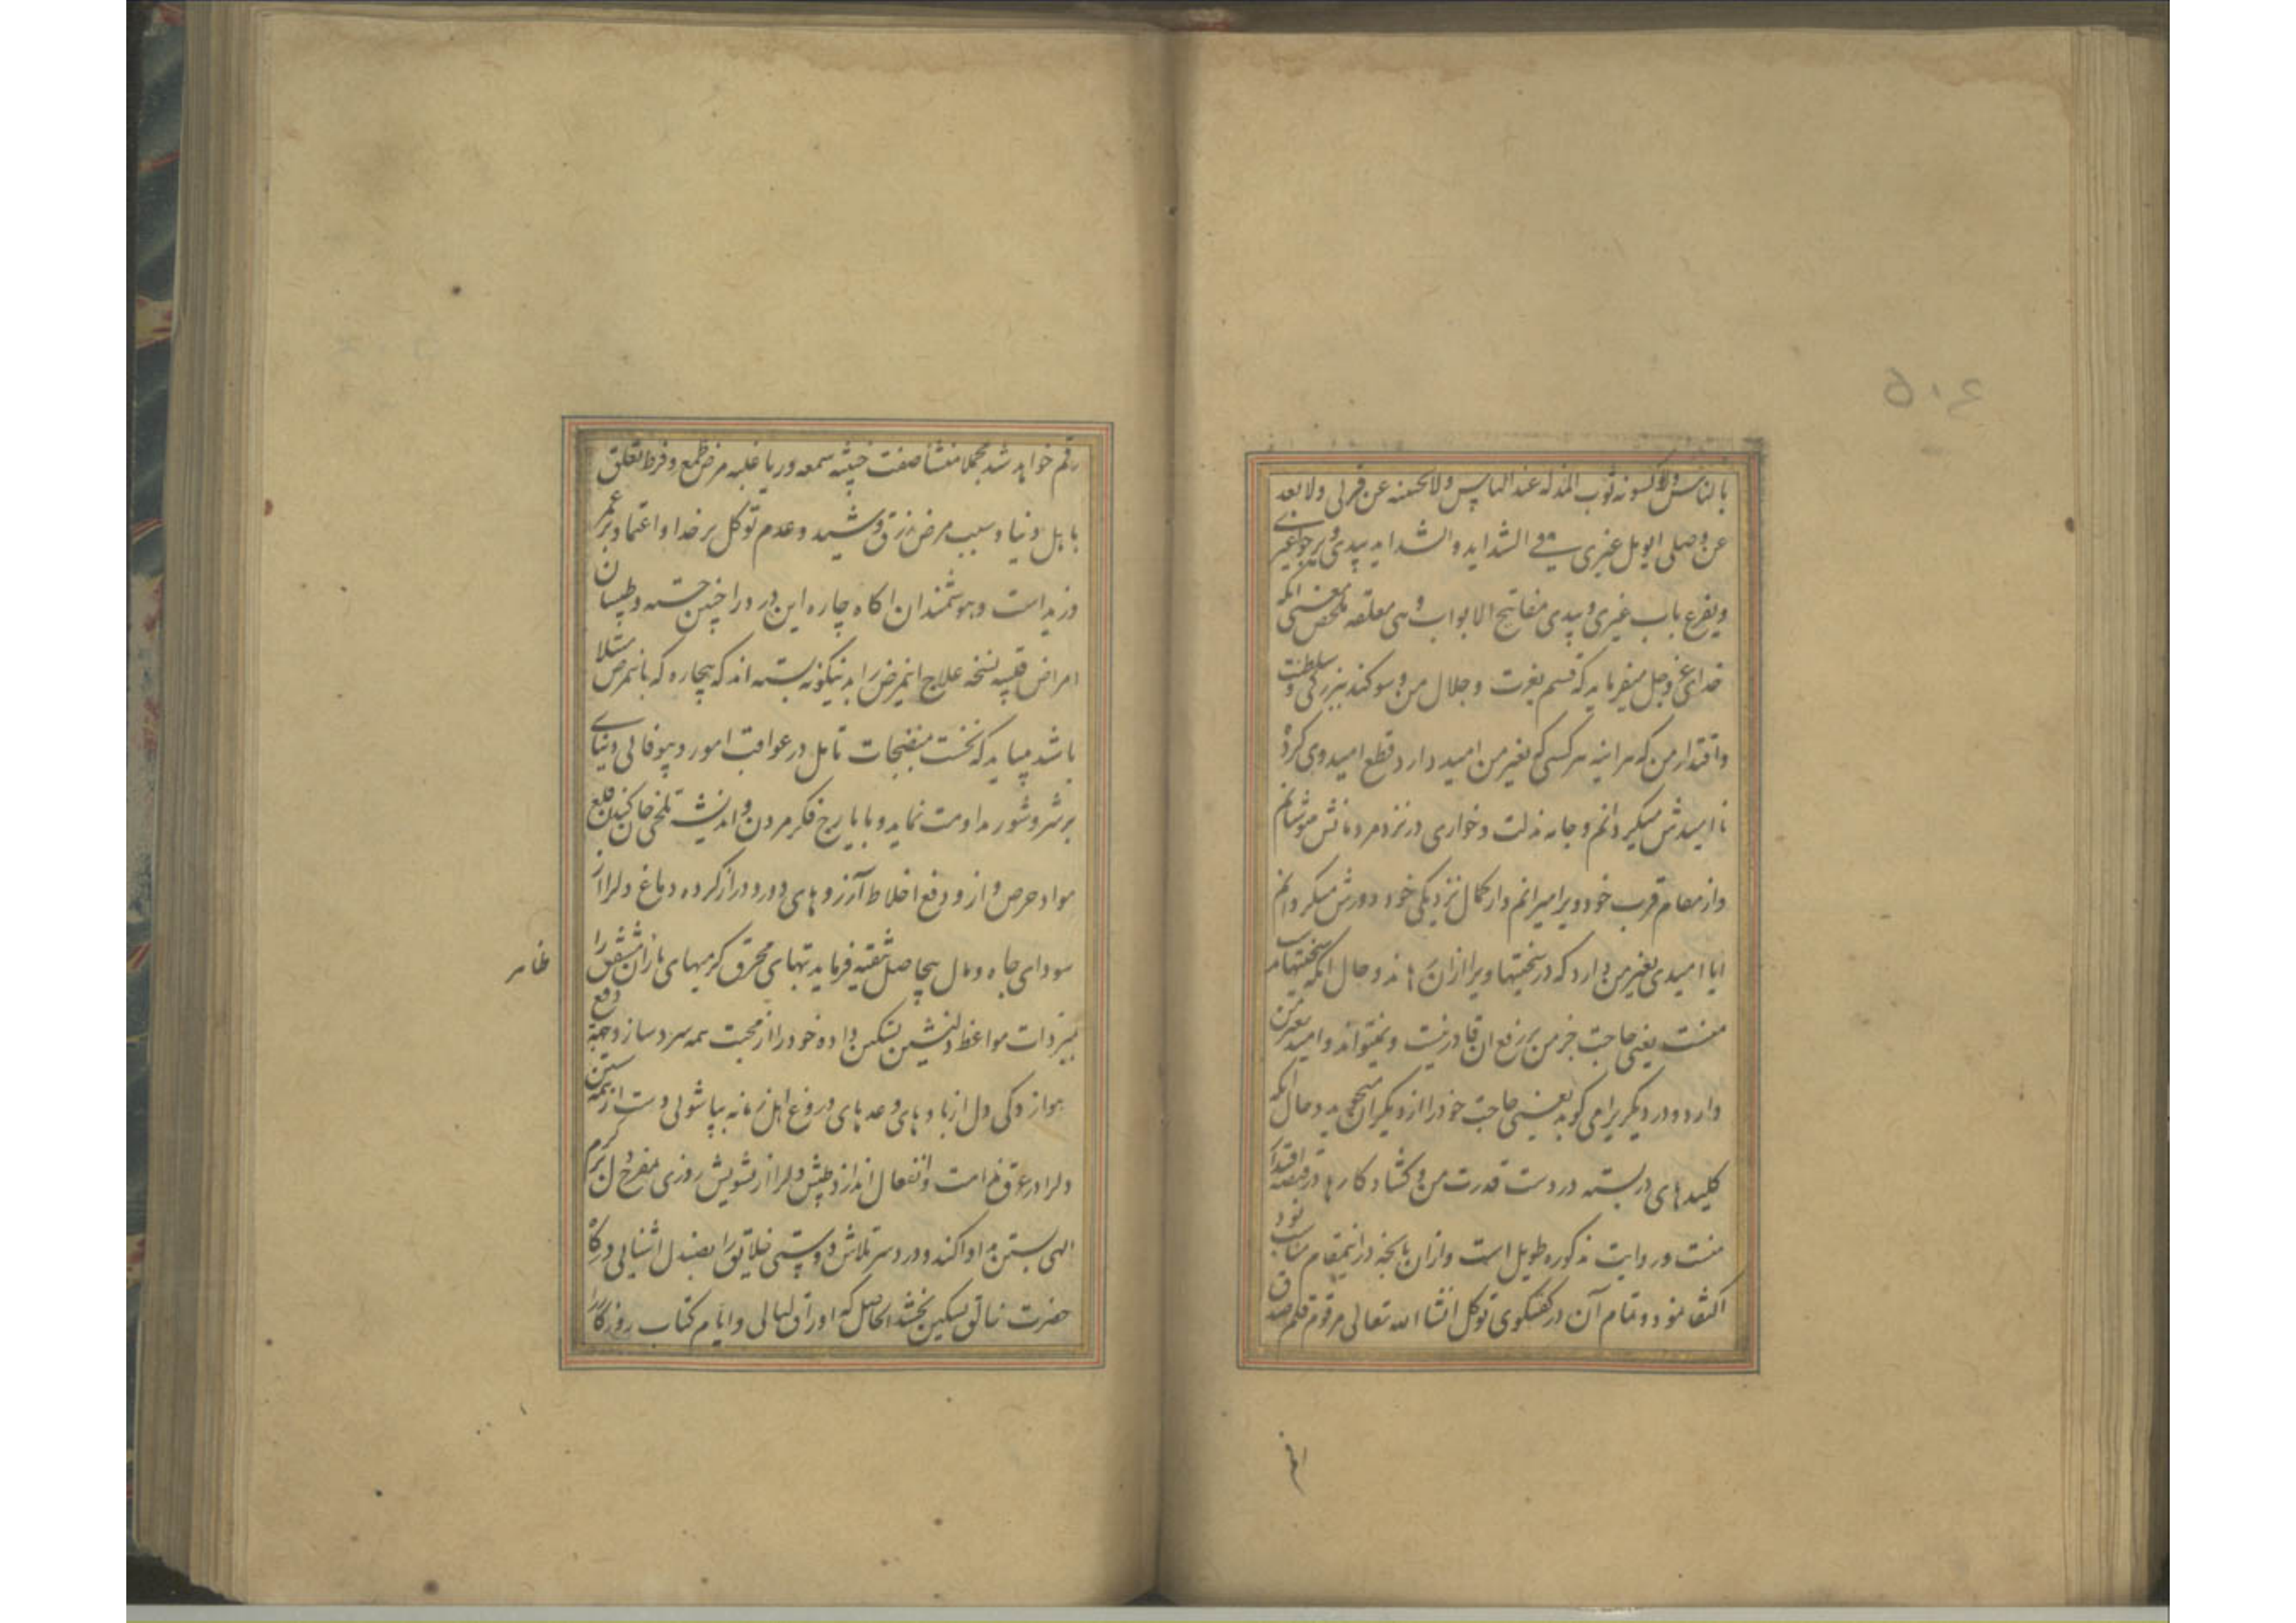 ۵۰۶
بالناس ولاکسونه ثوب المذله عند الناس ولانحینه عن قربی ولابعدنه
عن وصلی ایومل غیری فی الشداید والشداید بیدی ویرجوا غیری
ویقرع باب غیری وبیدی مفاتیح الابواب وهی مغلقه ملخص معنی انکه
خدای عزوجل میفرماید که قسم بعزت و جلال من و سوکند ببزرکی و سلطنت
واقتدار من که هراینه هرکسی که بغیر من امید دارد قطع امید وی کرده
ناامیدش میکردانم و جامه مذلت و خواری در نزد مردمانش میپوشانم
واز مقام قرب خود ویرا میرانم و از کمال نزدیکی خود دورش میکردانم
ایا امیدی بغیر من دارد که در سختیها ویرا ازان رهاند و حال انکه سختیها بدست
منست یعنی حاجت جز من بر رفع ان قادر نیست و نمیتواند و امید بغیر من
دارد و در دیکریرا می کوبد یعنی حاجت خود را از دیکران میجوید و حال انکه
کلیدهای در بسته در دست قدرت من و کشاد کارها در قبضه اقتدار
منست و روایت مذکوره طویل است و ازان بانچه در اینمقام مناسب بود
اکتفا نمود و تمام آن در کفتکوی توکل انشا الله تعالی مرقوم قلم صدق
رقم خواهد شد مجملا منشا صفت خبیثه سمعه و ریا غلبه مرض طمع و فرط تعلق
باهل دنیا و سبب مرض زرق و شید و عدم توکل بر خدا و اعتماد بر عمر
وزید است و هوشمندان اکاه چاره این درد را چنین جسته و طبیبان
امراض قلبیه نسخه علاج اینمرض را بدینکونه بسته اند که بیچاره که باینمرض مبتلا
باشد میباید که نخست بمنضجات تامل در عواقب امور و بیوفائی دنیای
پرشر و شور مداومت نماید و بایارج فکر مردن و اندیشه تلخی جان کندن قلع
مواد حرص و از و دفع اخلاط آرزوهای دور و دراز کرده دماغ دلرا از
سودای جاه و مال بیحاصل تنقیه فرماید تبهای محرق کرمیهای یاران مشفق را
بمبردات مواعظ دلنشین تسکین داده خود را از محبت همه سرد سازد و بجهة دفع
هواز دکی دل از بادهای وعدهای دروغ اهل زمانه بپاشوئی دست از همه شستن
دلرا در عرق ندامت و انفعال اندازد و طپش دلرا از تشویش روزی بمفرح دل بر کرم
الهی بستن مداوا کند و دردسر تلاش دوستی خلایق را بصندل اشنائی درکاه
حضرت خالق تسکین بخشد الحاصل که اوراق لیالی و ایام کتاب روزکار را